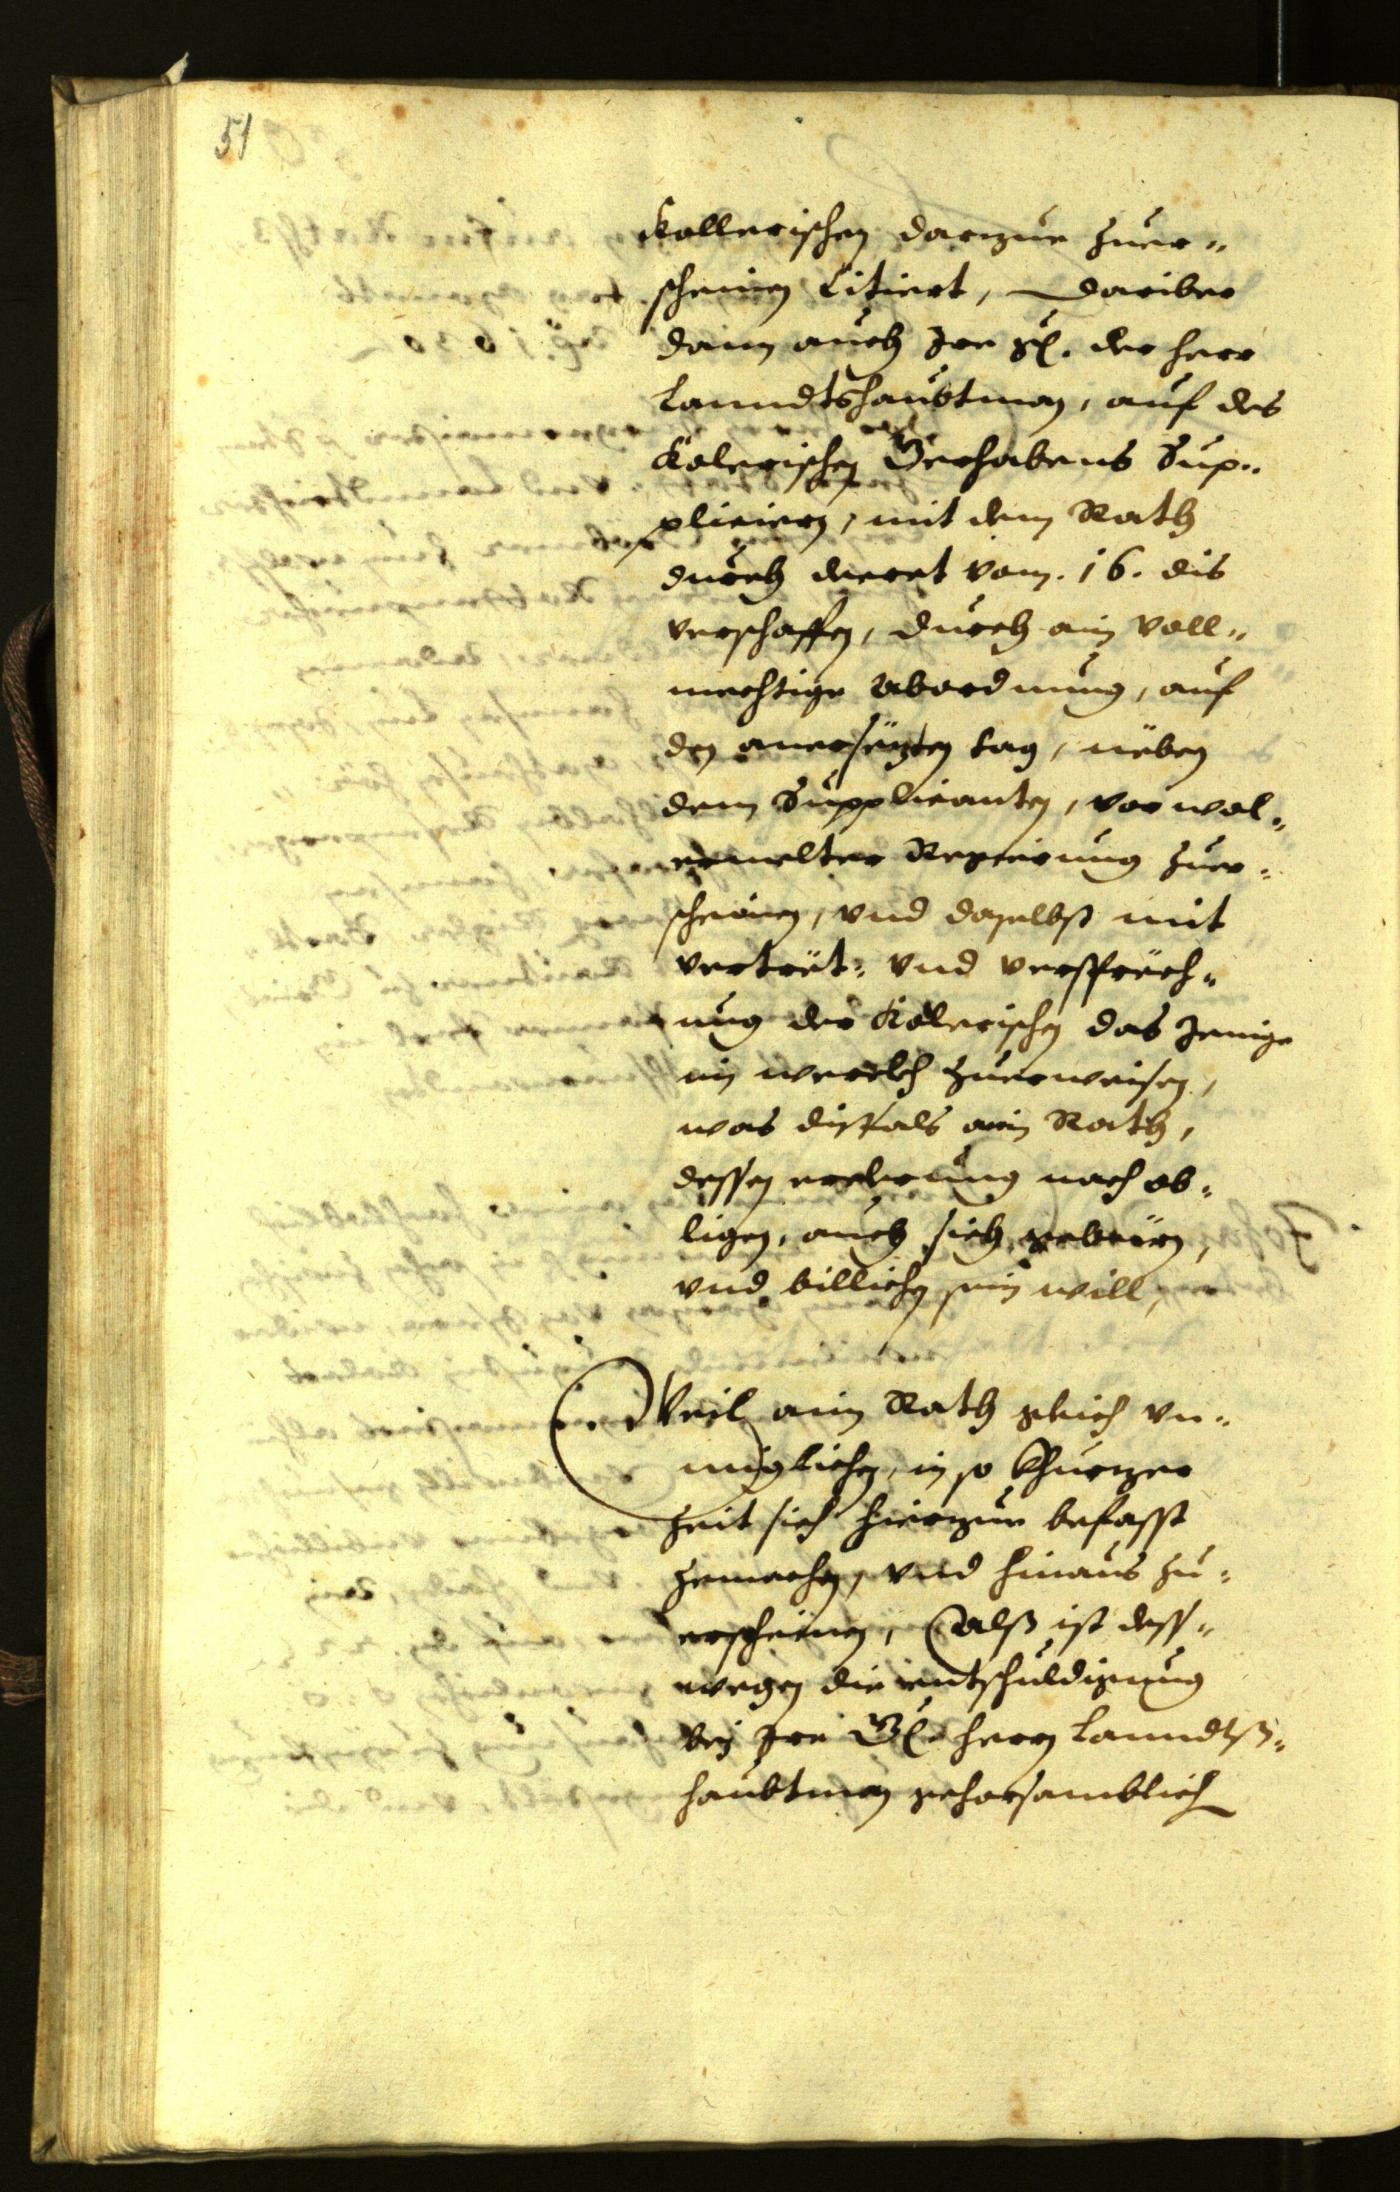 51
Kollerischen darzue zuer„
scheinen Citiert, Dariber
dann auch Ire Gl. der herr
Lanndtshaubtman, auf des
Kolerischen Gerhabens Sup„
plicieren, mit dem Rath
durch decret vom .16. dis
verschaffen, durch ain voll„
mechtige Abordnung, auf
den anersezten tag, neben
dem Supplicanten, vor wol„
ermelter Regierung zuer„
scheinen, vnd daselbst mit
vertret: vnd versprech„
ung der Kolerischen das Jenige
im werckh zuerweisen,
was dissfals ain Rath,
dessen erclerung nach ob„
ligen, auch sich gebürn,
vnd billichen sein will,
Weil ain Rath gleich vn„
miglichen, in so Khurzer
Zeit sich hierzue befasst
zemachen, vnd hinaus zu„
erscheinen, Alß ist dess„
wegen die entschuldigung
bey Ire Gl. herrn Lanndtß„
haubtman gehorsamblich